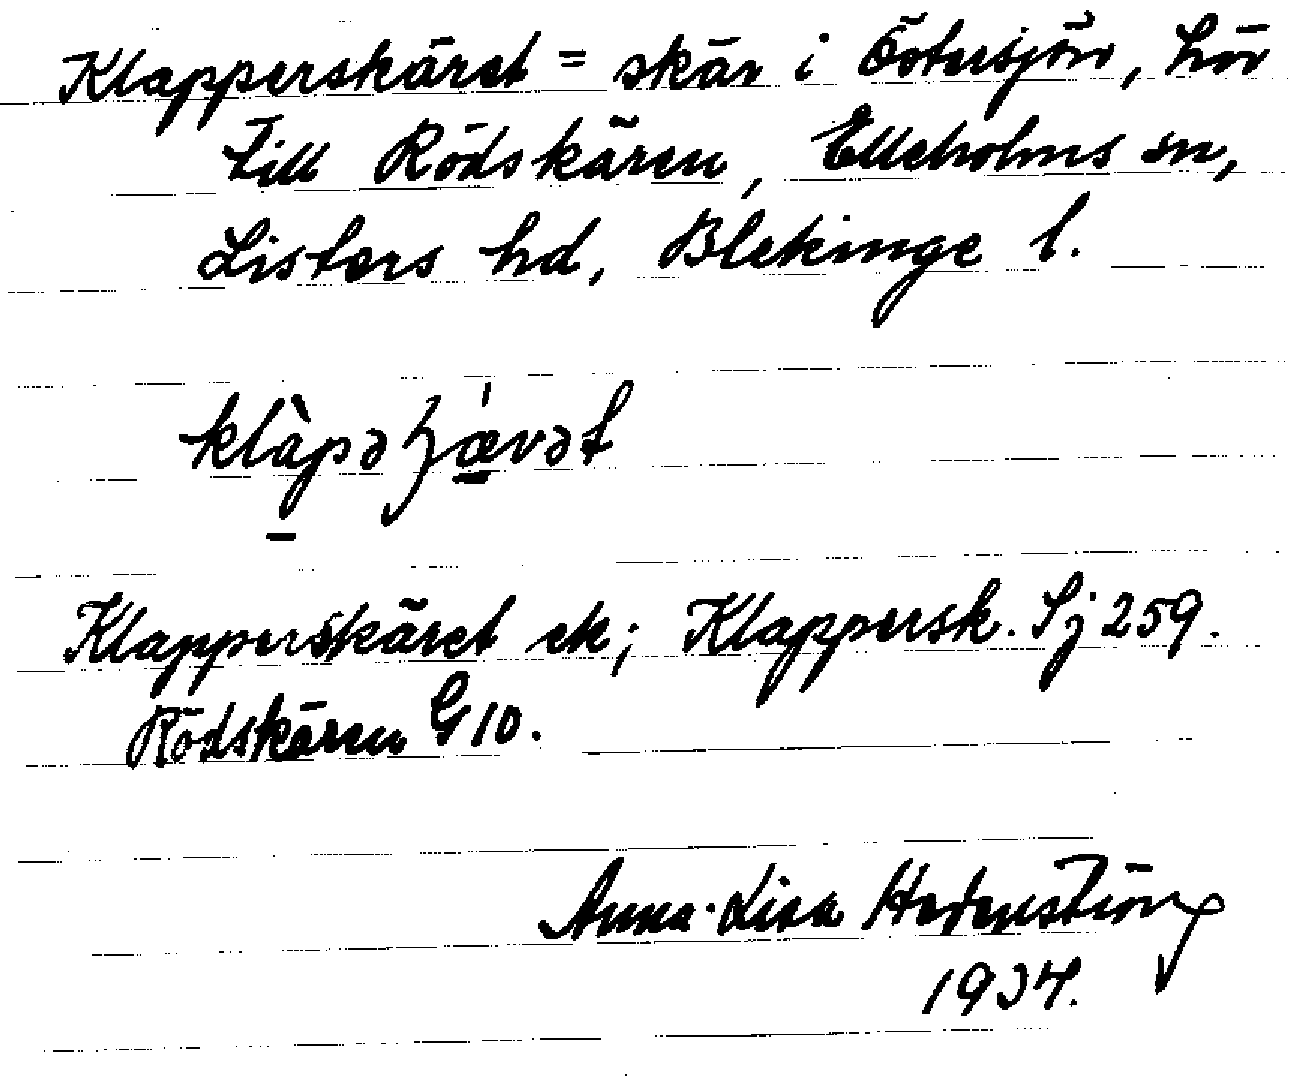 Klapperskäret = skär i Östersjön, hör
till Rödskären, Elleholms sn,
Listers hd, Blekinge l.
klàpə ʃæ̀rət
Klapperskäret ek; Klappersk. Sj 259.
Rödskären G10.
Anna-Lisa Hedenström
1934.